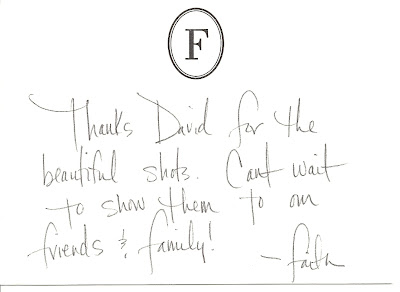 F
Thanks David for the
beautiful shots. Cant wait
to show them to our
friends & family!
- Faith